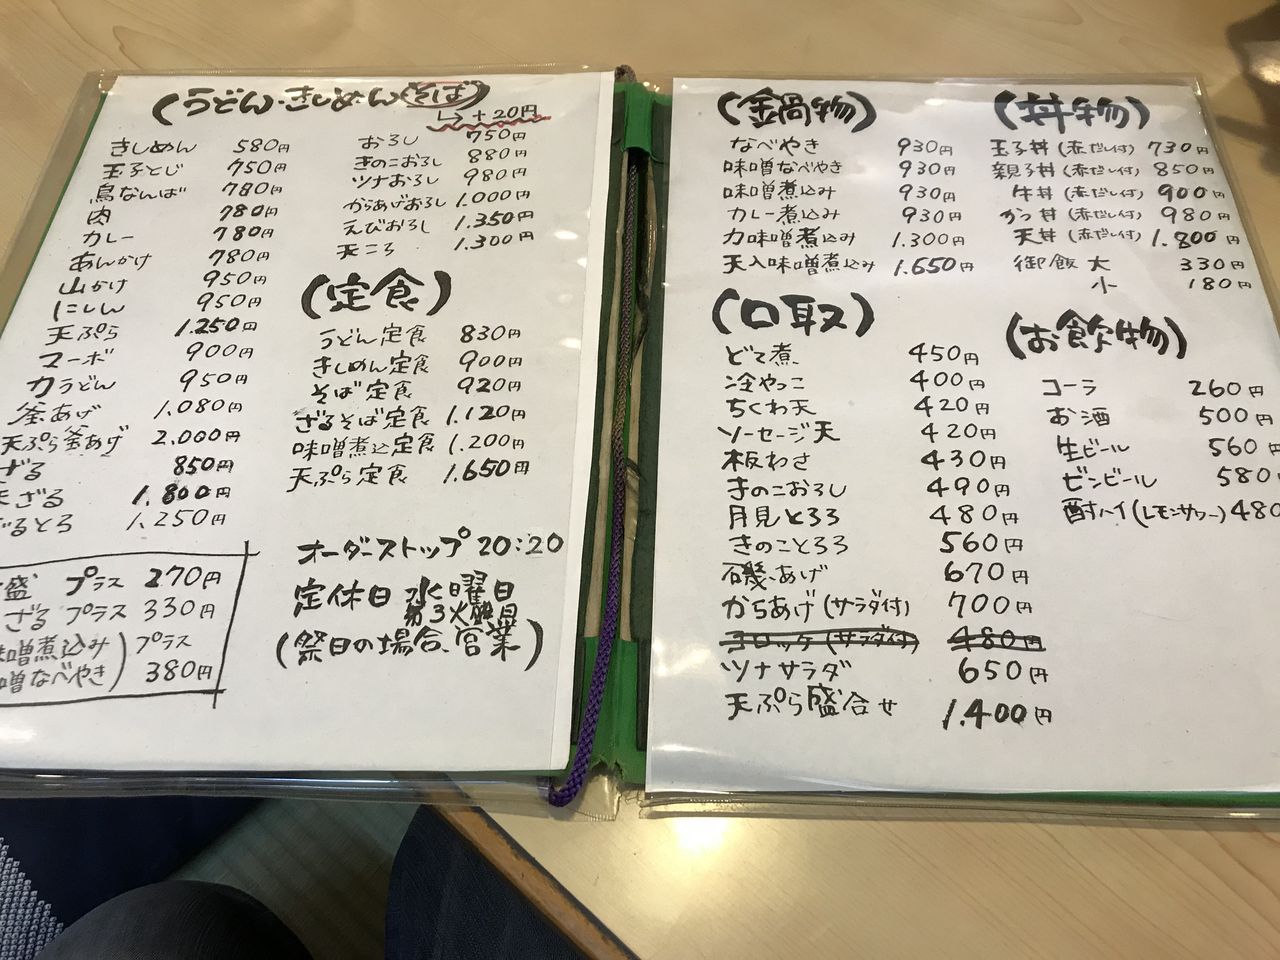 (うどん・きしめん(そば))
↳+20円
きしめん 580円
玉子とじ 750円
鳥なんば 780円
肉 780円
カレー 780円
あんかけ 780円
山かけ 950円
にしん 950円
天ぷら 1.250円
マーボ 900円
力うどん 950円
釜あげ 1.080円
天ぷら釜あげ 2.000円
ざる 850円
天ざる 1.800円
ざるとろ 1.250円
盛 プラス 270円
ざる プラス 330円
味噌煮込み) プラス
噌なべやき) 380円
おろし 750円
きのこおろし 880円
ツナおろし 980円
からあげおろし 1.000円
えびおろし 1.350円
天ころ 1.300円
(定食)
うどん定食 830円
きしめん定食 900円
そば定食 920円
ざるそば定食 1.120円
味噌煮込定食 1.200円
天ぷら定食 1.650円
オーダーストップ 20:20
定休日 水曜日
第3火曜日
(祭日の場合、営業)
(鍋物)
なべやき 930円
味噌なべやき 930円
味噌煮込み 930円
カレー煮込み 930円
力味噌煮込み 1.300円
天入味噌煮込み 1.650円
(口取)
どて煮 450円
冷やっこ 400円
ちくわ天 420円
ソーセージ天 420円
板わさ 430円
きのこおろし 490円
月見とろろ 480円
きのことろろ 560円
磯あげ 670円
からあげ(サラダ付) 700円
コロッケ(サラダ付) 480円
ツナサラダ 650円
天ぷら盛合せ 1.400円
(丼物)
玉子丼(赤だし付) 730円
親子丼(赤だし付) 850円
牛丼(赤だし付) 900円
かつ丼(赤だし付) 980円
天丼(赤だし付) 1.800円
御飯 大 330円
小 180円
(お飲物)
コーラ 260円
お酒 500円
生ビール 560円
ビンビール 580円
酎ハイ(レモンサワー) 480